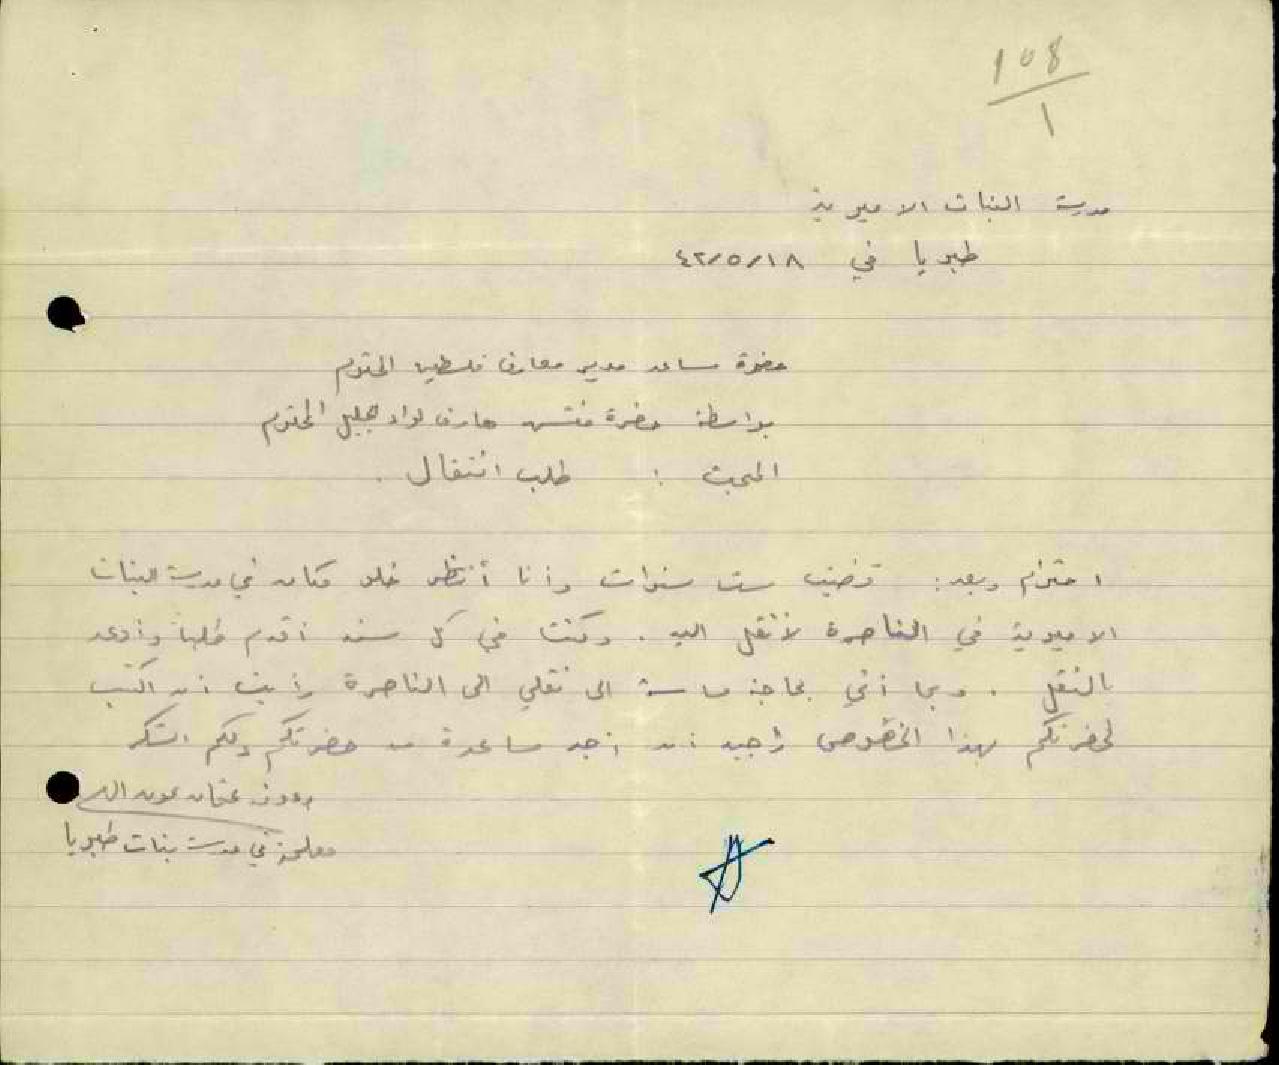 108
1
مدرسة البنات الاميرية
طبريا في ٤٢/٥/١٨
حضرة مساعد مدير معارف فلسطين المحترم
بواسطة حضرة مفتش معارف لواء الجليل المحترم
المبحث : طلب انتقال .
احترام وبعد : قضيت ست سنوات وأنا أنتظر خلو مكان في مدرسة البنات
الاميرية في الناصرة لأنقل اليه . وكنت في كل سنه اقدم طلباً وأوعد
بالنقل . وبما أنني بحاجة ماسة الى نقلي الى الناصرة رأيت ان اكتب
لحضرتكم بهذا الخصوص راجية ان اجد مساعدة من حضرتكم ولكم الشكر
عون الله
معلمة في مدرسة بنات طبريا